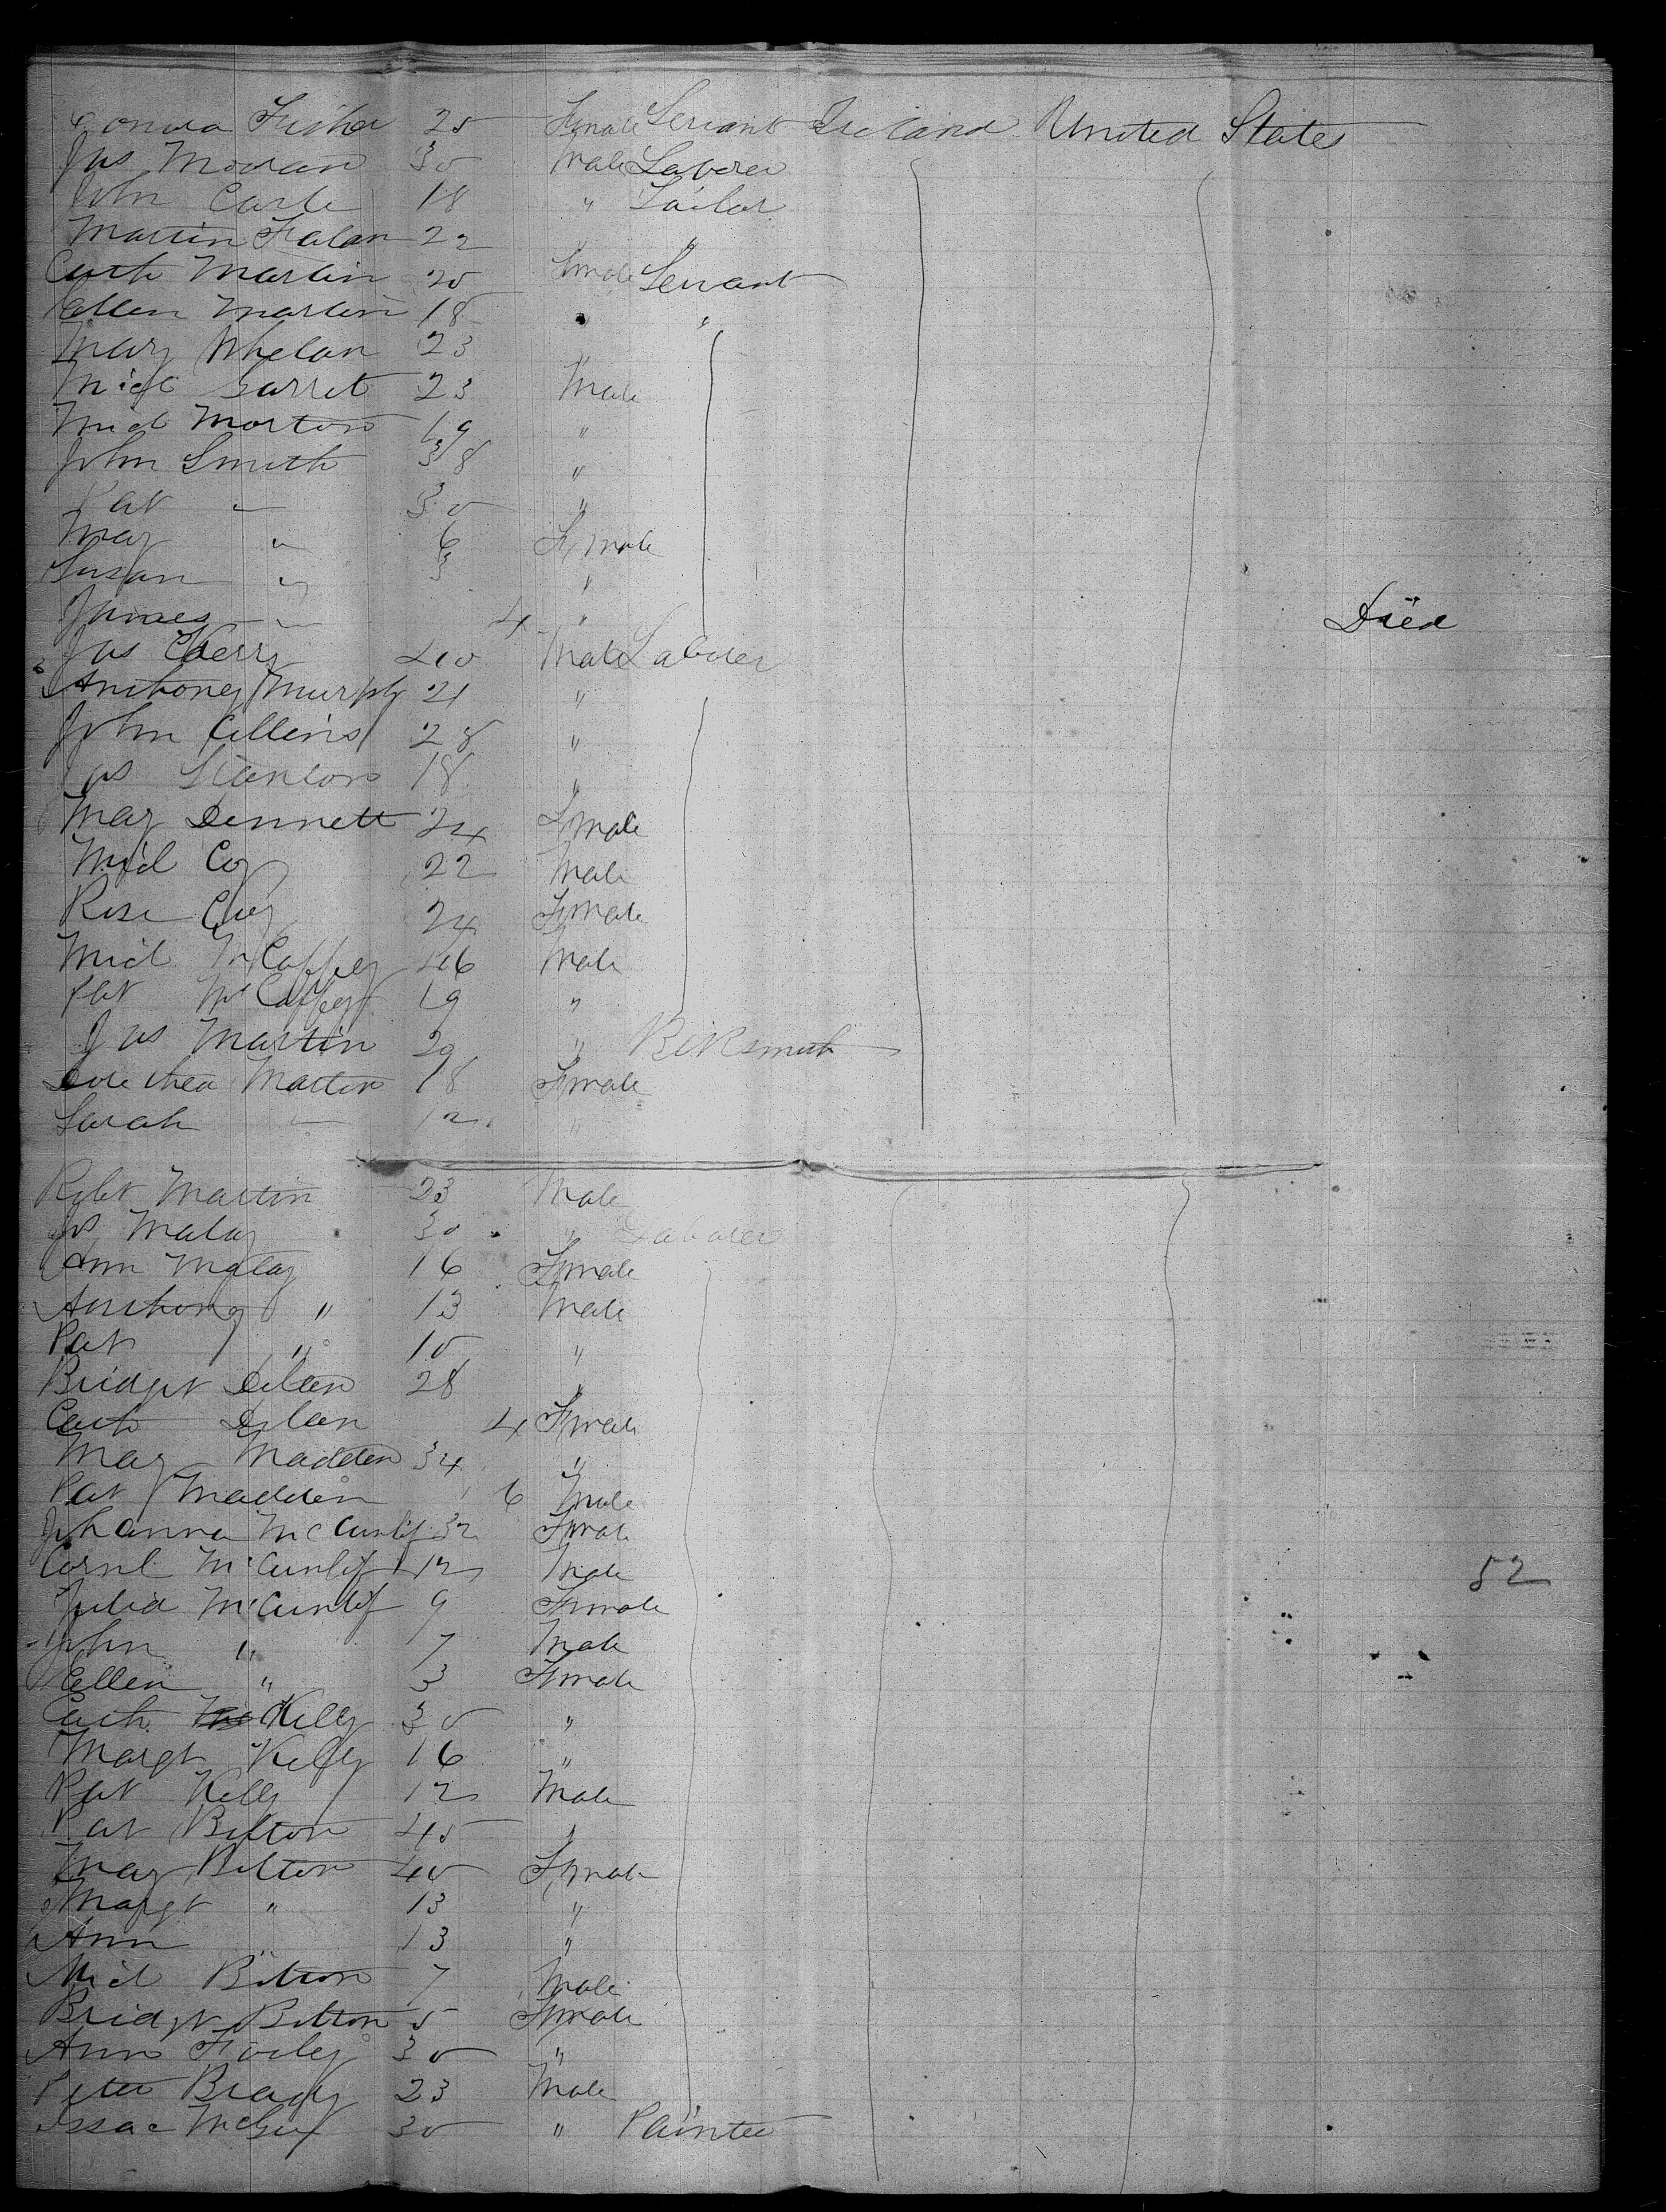 Fisher 25 Female Servant Ireland United States
Jas 30 Male Laborer
John 18 " Tailor
Martin 22 "
Cath Martin 20 Female Servant
Ellen Martin 18 " "
Mary Whelan 23 "
Micl Garret 23 Male
Micl Morton 19 "
John Smith 38 "
Pat " 30 "
Mary " 6 Female
Susan " 3 "
James " 4 " Died
Jas 40 Male Laborer
Anthony Murphy 21 "
John Collins 28 "
Jas Stanton 18 "
Mary Dennett 24 Female
Micl Coy 22 Male
Rose Coy 24 Female
Micl McCaffrey 46 Male
Pat McCaffrey 19 "
Jas Martin 29 " Blksmith
Martin 18 Female
Sarah " 12 "
Robt Martin 23 Male
Malay 30 " Laborer
Ann Malay 16 Female
Anthony " 13 Male
Pat " 10 "
Bridget Dolan 28 "
Cath Dolan 4 Female
Mary Madden 34 "
Pat Madden 6 Male
Johanna McCunlif 32 Female
Cornl McCunlif 12 Male 52
Julia McCunlif 9 Female
John " 7 Male
Ellen " 3 Female
Cath Kelly 30 "
Margt Kelly 16 "
Pat Kelly 12 Male
Pat Bolton 45 "
Mary Bolton 40 Female
Margt " 13 "
Ann " 13 "
Micl Bolton 7 Male
Bridgt Bolton 5 Female
Ann 30 "
Peter Brady 23 Male
Issac 30 " Painter